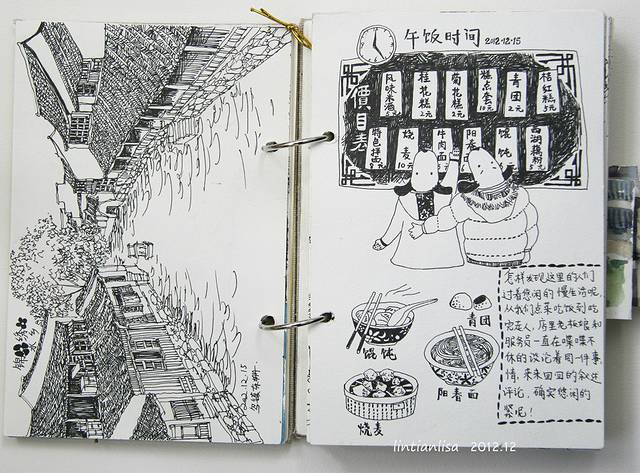 锦绣
水乡
2012.12.15
午饭时间 2012.12.15
價目表
桂花糕 2元
菊花糕 2元
糕点套 10元
青团 2元
桔红糕 5元
特色拌面 8元
烧麦 10元
牛肉面
阳春
馄饨
西湖藕粉
馄饨
青团
烧麦
阳春面
怎样发现这里的人们
过着悠闲的慢生活呢,
从我们点菜吃饭到吃
完走人,店里老板娘和
服务员一直在喋喋不
休的谈论着同一件事
情,来来回回的叙述
评论,确实悠闲的
紧呢!
lintianlisa 2012.12